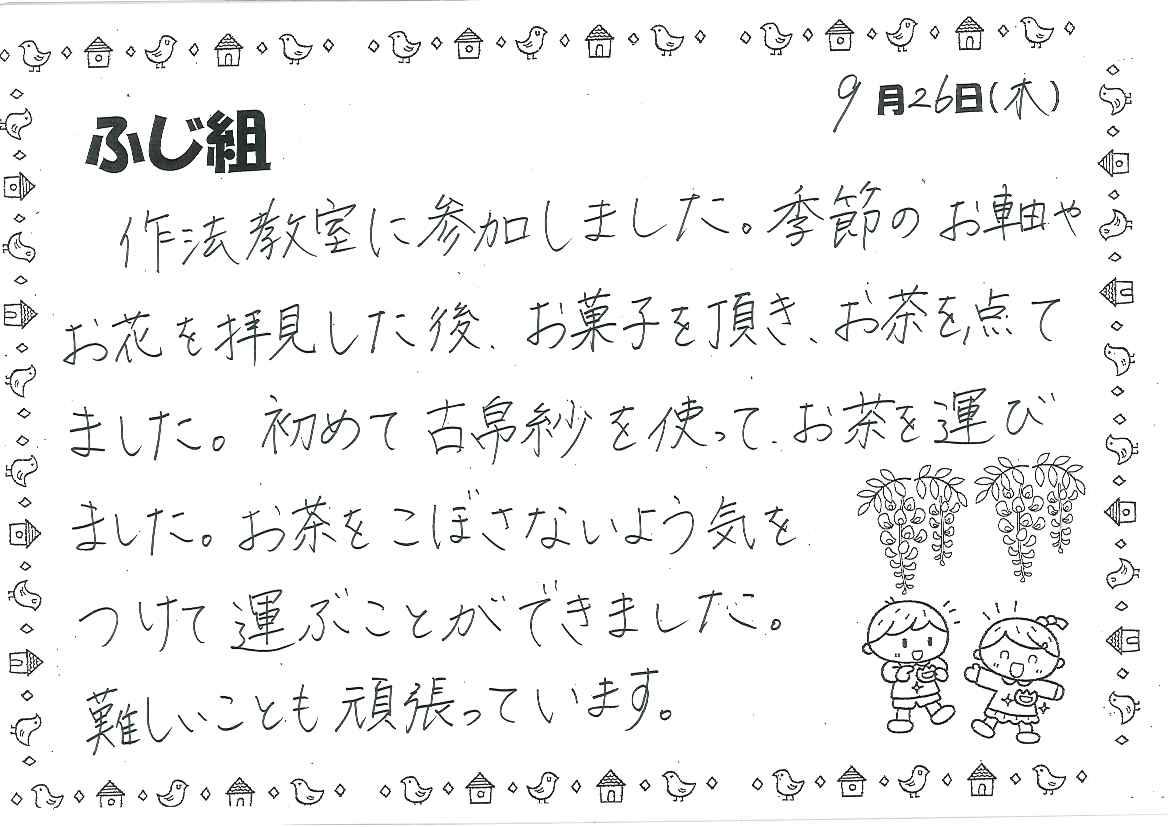 9月26日(木)
ふじ組
作法教室に参加しました。季節のお軸や
お花を拝見した後、お菓子を頂き、お茶を点て
ました。初めて古帛紗を使って、お茶を運び
ました。お茶をこぼさないよう気を
つけて運ぶことができました。
難しいことも頑張っています。